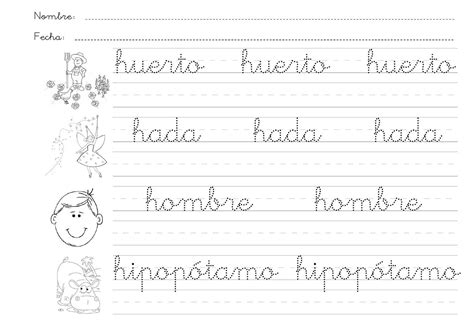 Nombre:
Fecha:
huerto huerto huerto
hada hada hada
hombre hombre
hipopótamo hipopótamo